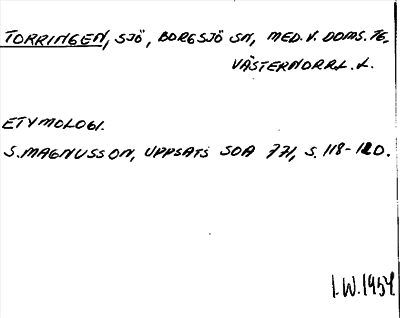 TORRINGEN, SJÖ, BORGSJÖ SN, MED.V. DOMS. TG.
VÄSTERNORRL. L.
ETYMOLOGI.
S. MAGNUSSON, UPPSATS SOA 771, S. 118-120.
I.W. 1954